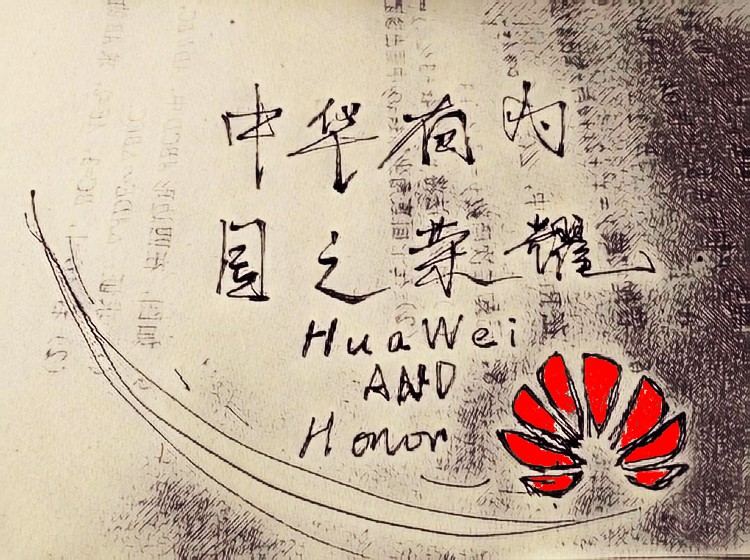 中华有为
国之荣耀
HuaWei
AND
Honor